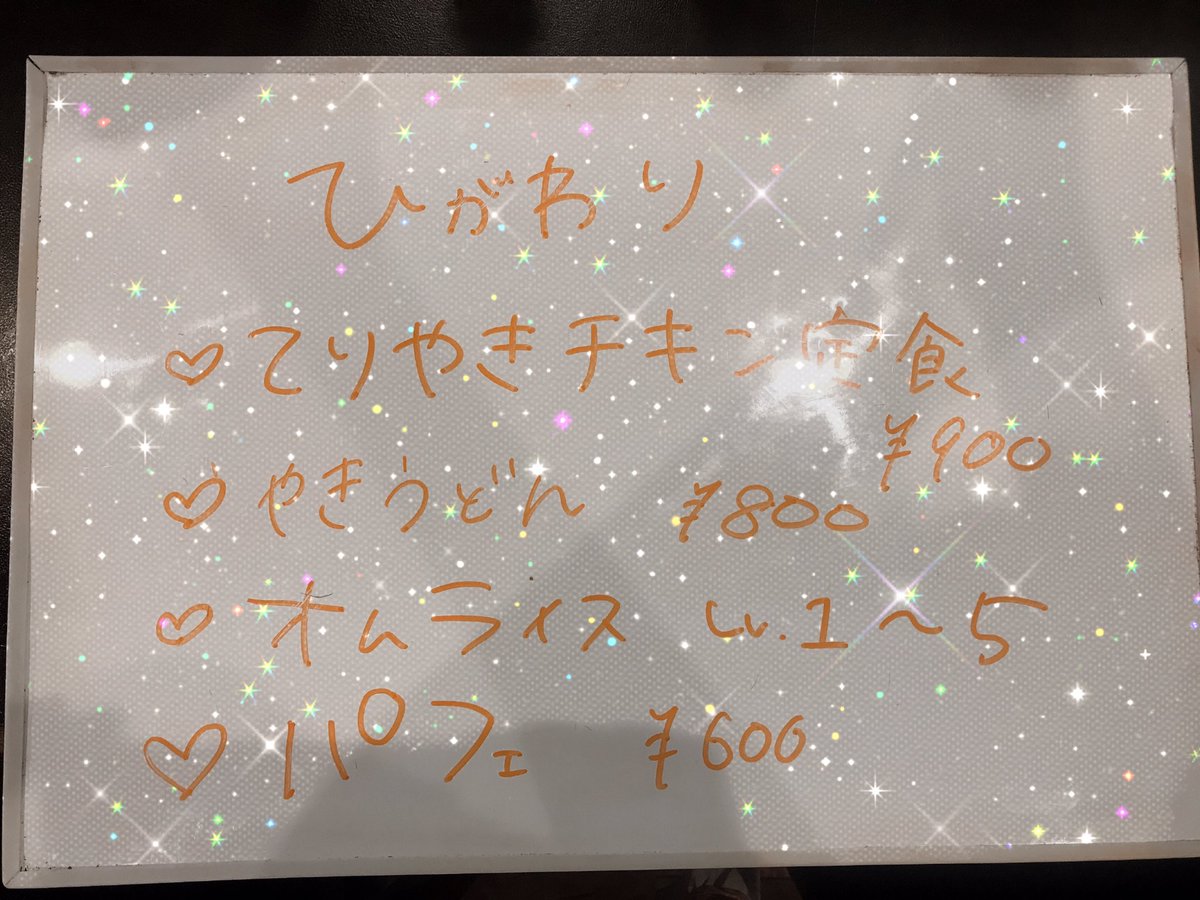 ひがわり
♡てりやきチキン定食
¥900
♡やきうどん ¥800
♡オムライス Lv.1〜5
♡パフェ ¥600